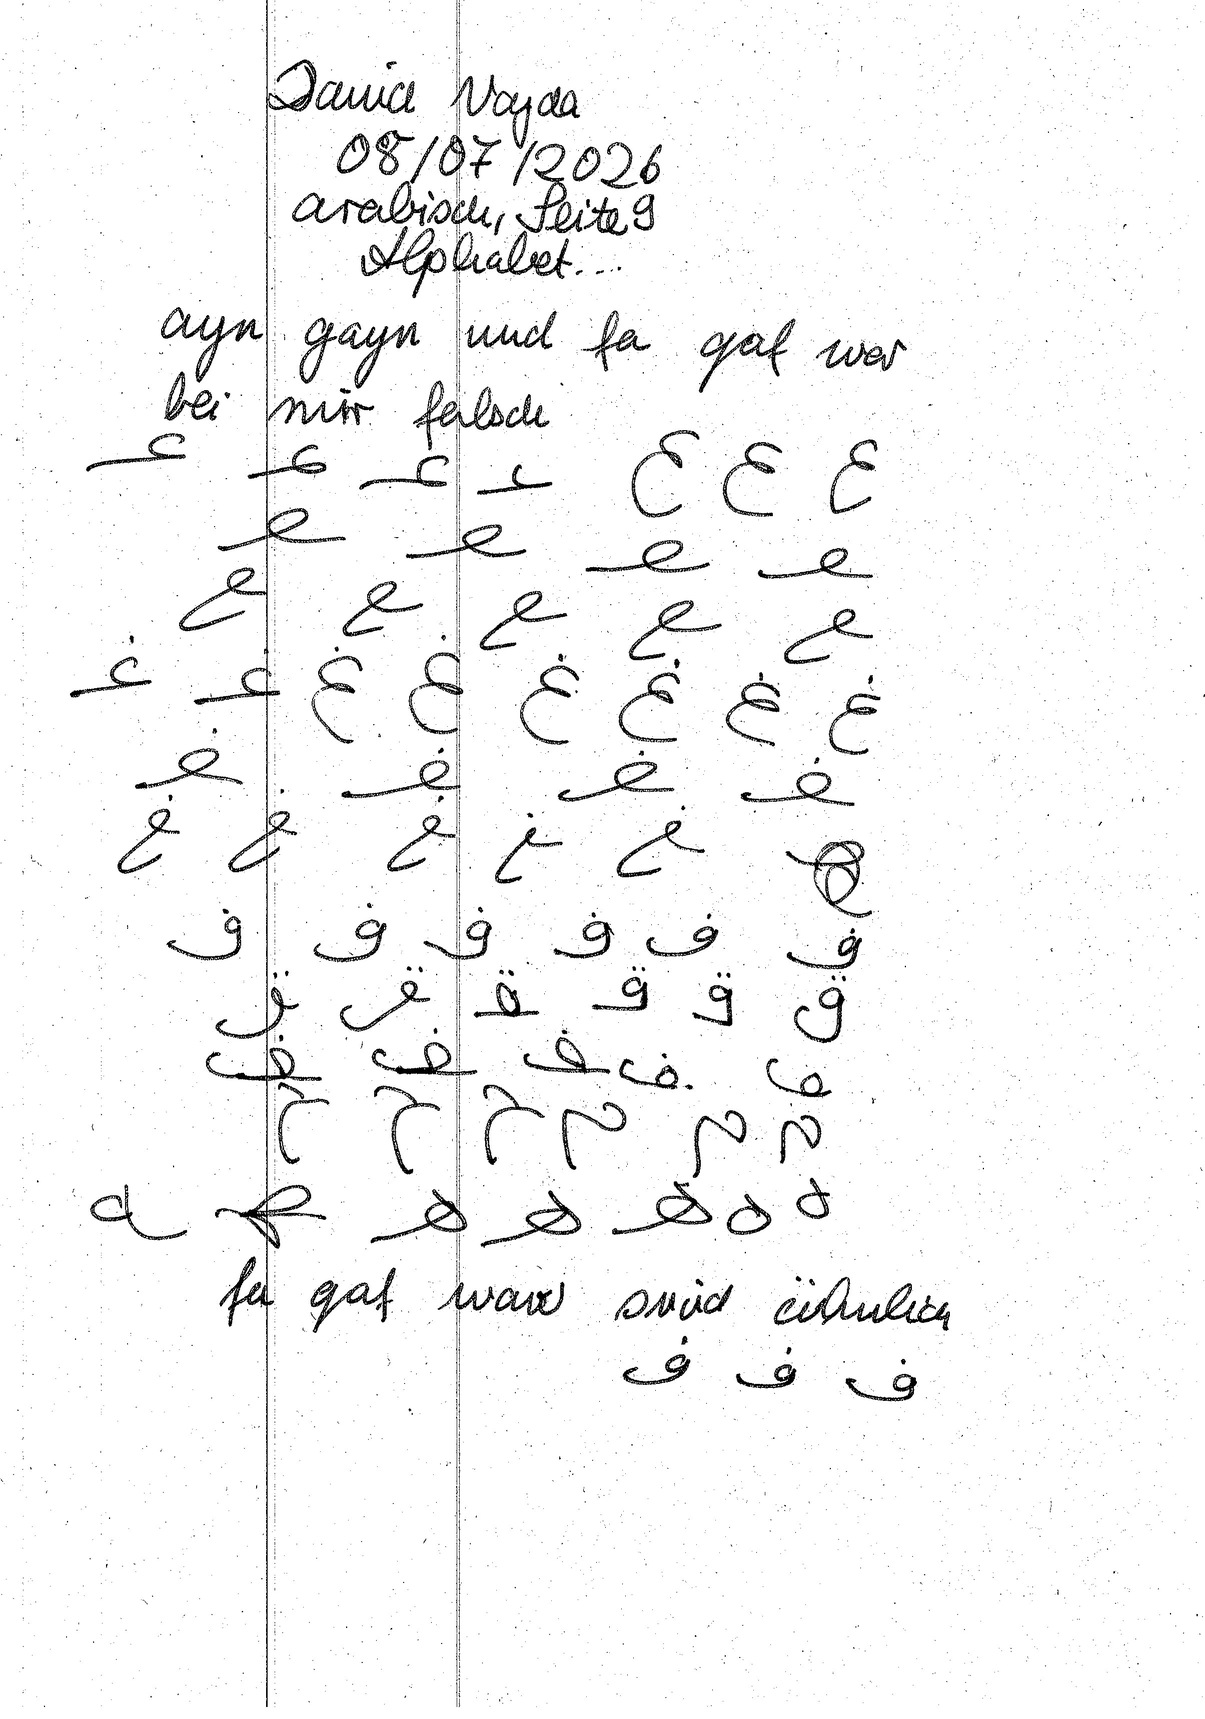 David Vajda
08/07/2026
arabisch, Seite 9
Alphabet...
ayn gayn und fa qaf war
bei mir falsch
ع ع ع عـ عـ عـ عـ
ـعـ ـعـ ـعـ ـعـ
ـع ـع ـع ـع ـع
غ غ غ غ غ غ غـ غـ
ـغـ ـغـ ـغـ ـغـ
ـغ ـغ ـغ ـغ ـغ
ف ف ف ف ف ف
ق ق ق ق ق ق
ه ه هـ هـ هـ ـهـ ـه
fa qaf waw sind ähnlich
ف ف ف